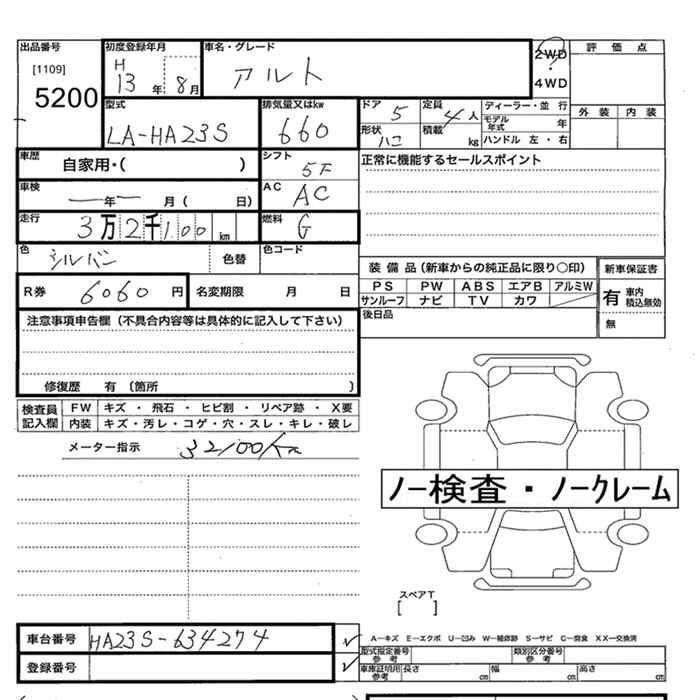 出品番号 初度登録年月 車名・グレード 2WD 評価点
[1109] H 4WD
5200 13年 8月 アルト 外装 内装
型式 排気量又はkw ドア 5 定員 4人 ディーラー・並行
LA-HA23S 660 形状 ハコ 積載 kg モデル年式 年
ハンドル 左・右
車歴 自家用・( ) シフト 5F 正常に機能するセールスポイント
車検 ―年―月( 日) AC AC
走行 3万2千100km 燃料 G
色 シルバン 色替 色コード
装備品(新車からの純正品に限り〇印) 新車保証書
R券 6060円 名変期限 月 日 PS PW ABS エアB アルミW 有 車内積込無効
サンルーフ ナビ TV カワ
注意事項申告欄(不具合内容等は具体的に記入して下さい) 後日品 無
修復歴 有 (箇所 )
検査員記入欄 FW キズ・飛石・ヒビ割・リペア跡・X要
内装 キズ・汚レ・コゲ・穴・スレ・キレ・破レ
メーター指示 32100Km
ノー検査・ノークレーム
スペアT
[ ]
車台番号 HA23S-634274 A-キズ E-エクボ U-凹み W-補修跡 S-サビ C-腐食 XX-交換済
型式指定番号 参考 類別区分番号 参考
登録番号 車庫証明用 参考 長さ cm 幅 cm 高さ cm